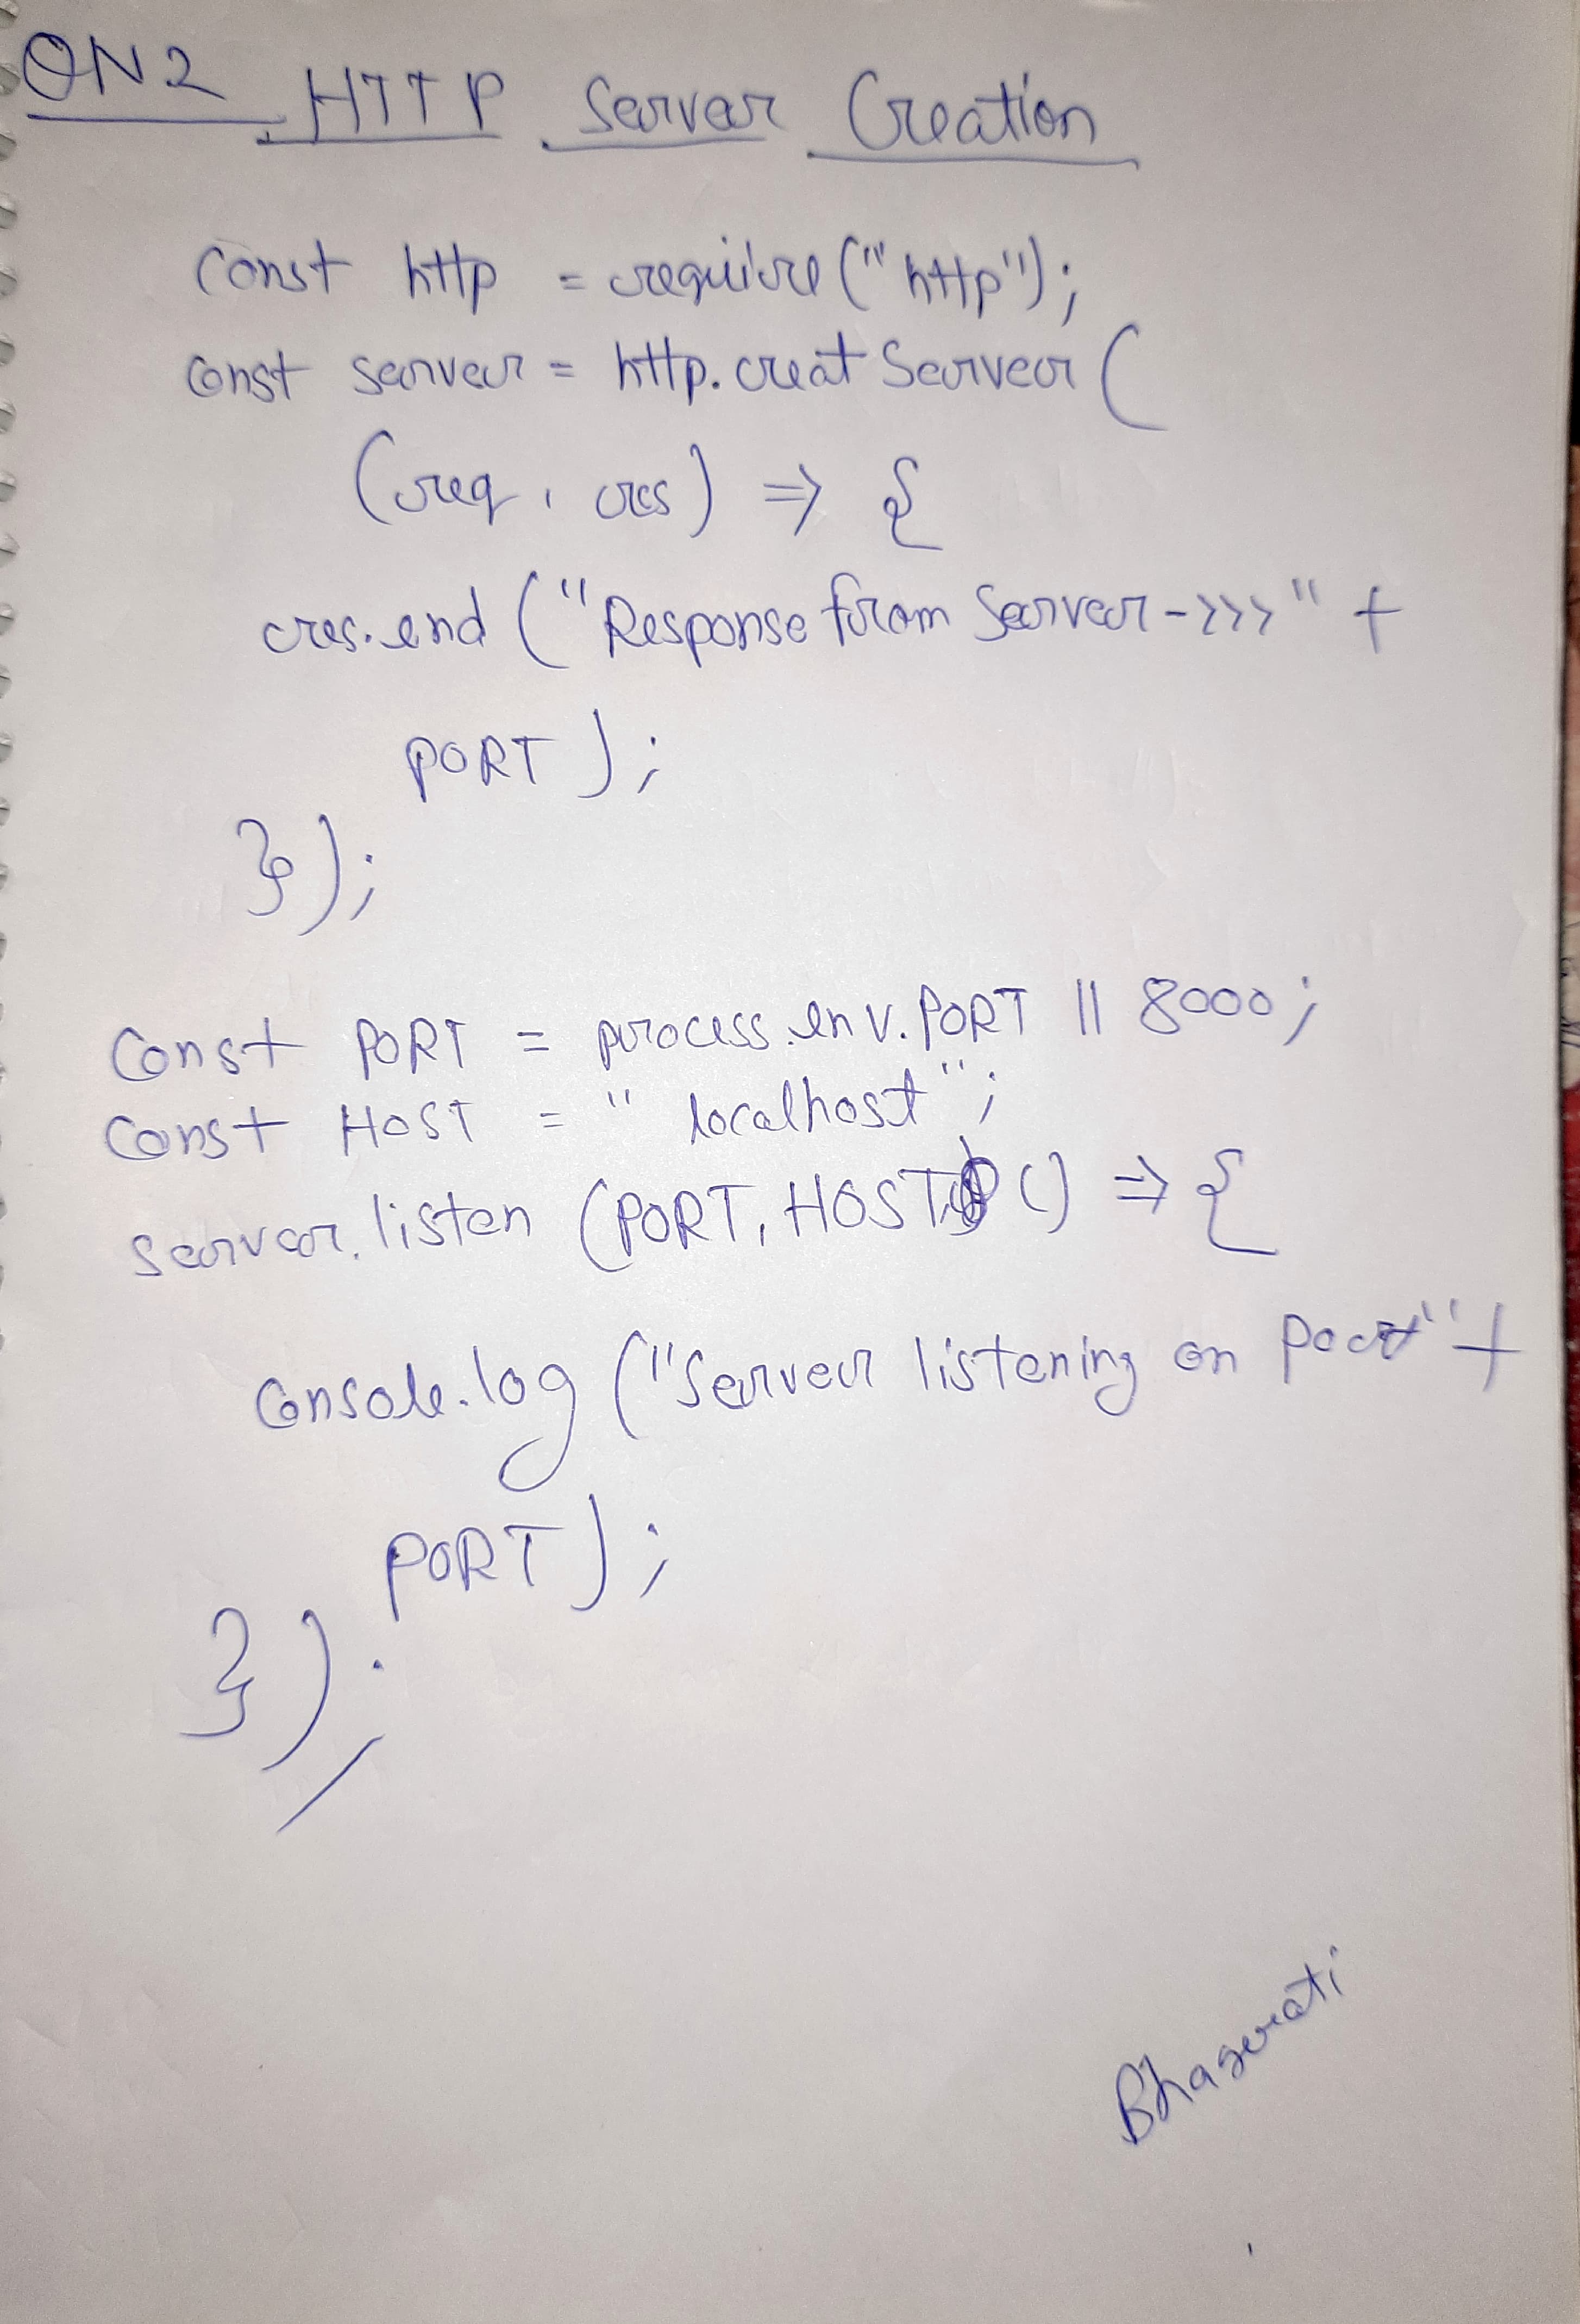 QN2 HTTP Server Creation
const http = require("http");
const server = http.creatServer(
(req, res) => {
res.end("Response from Server->>>" +
PORT);
});
const PORT = process.env.PORT || 8000;
const HOST = "localhost";
server.listen (PORT, HOST, () => {
console.log ("Server listening on port" +
PORT);
});